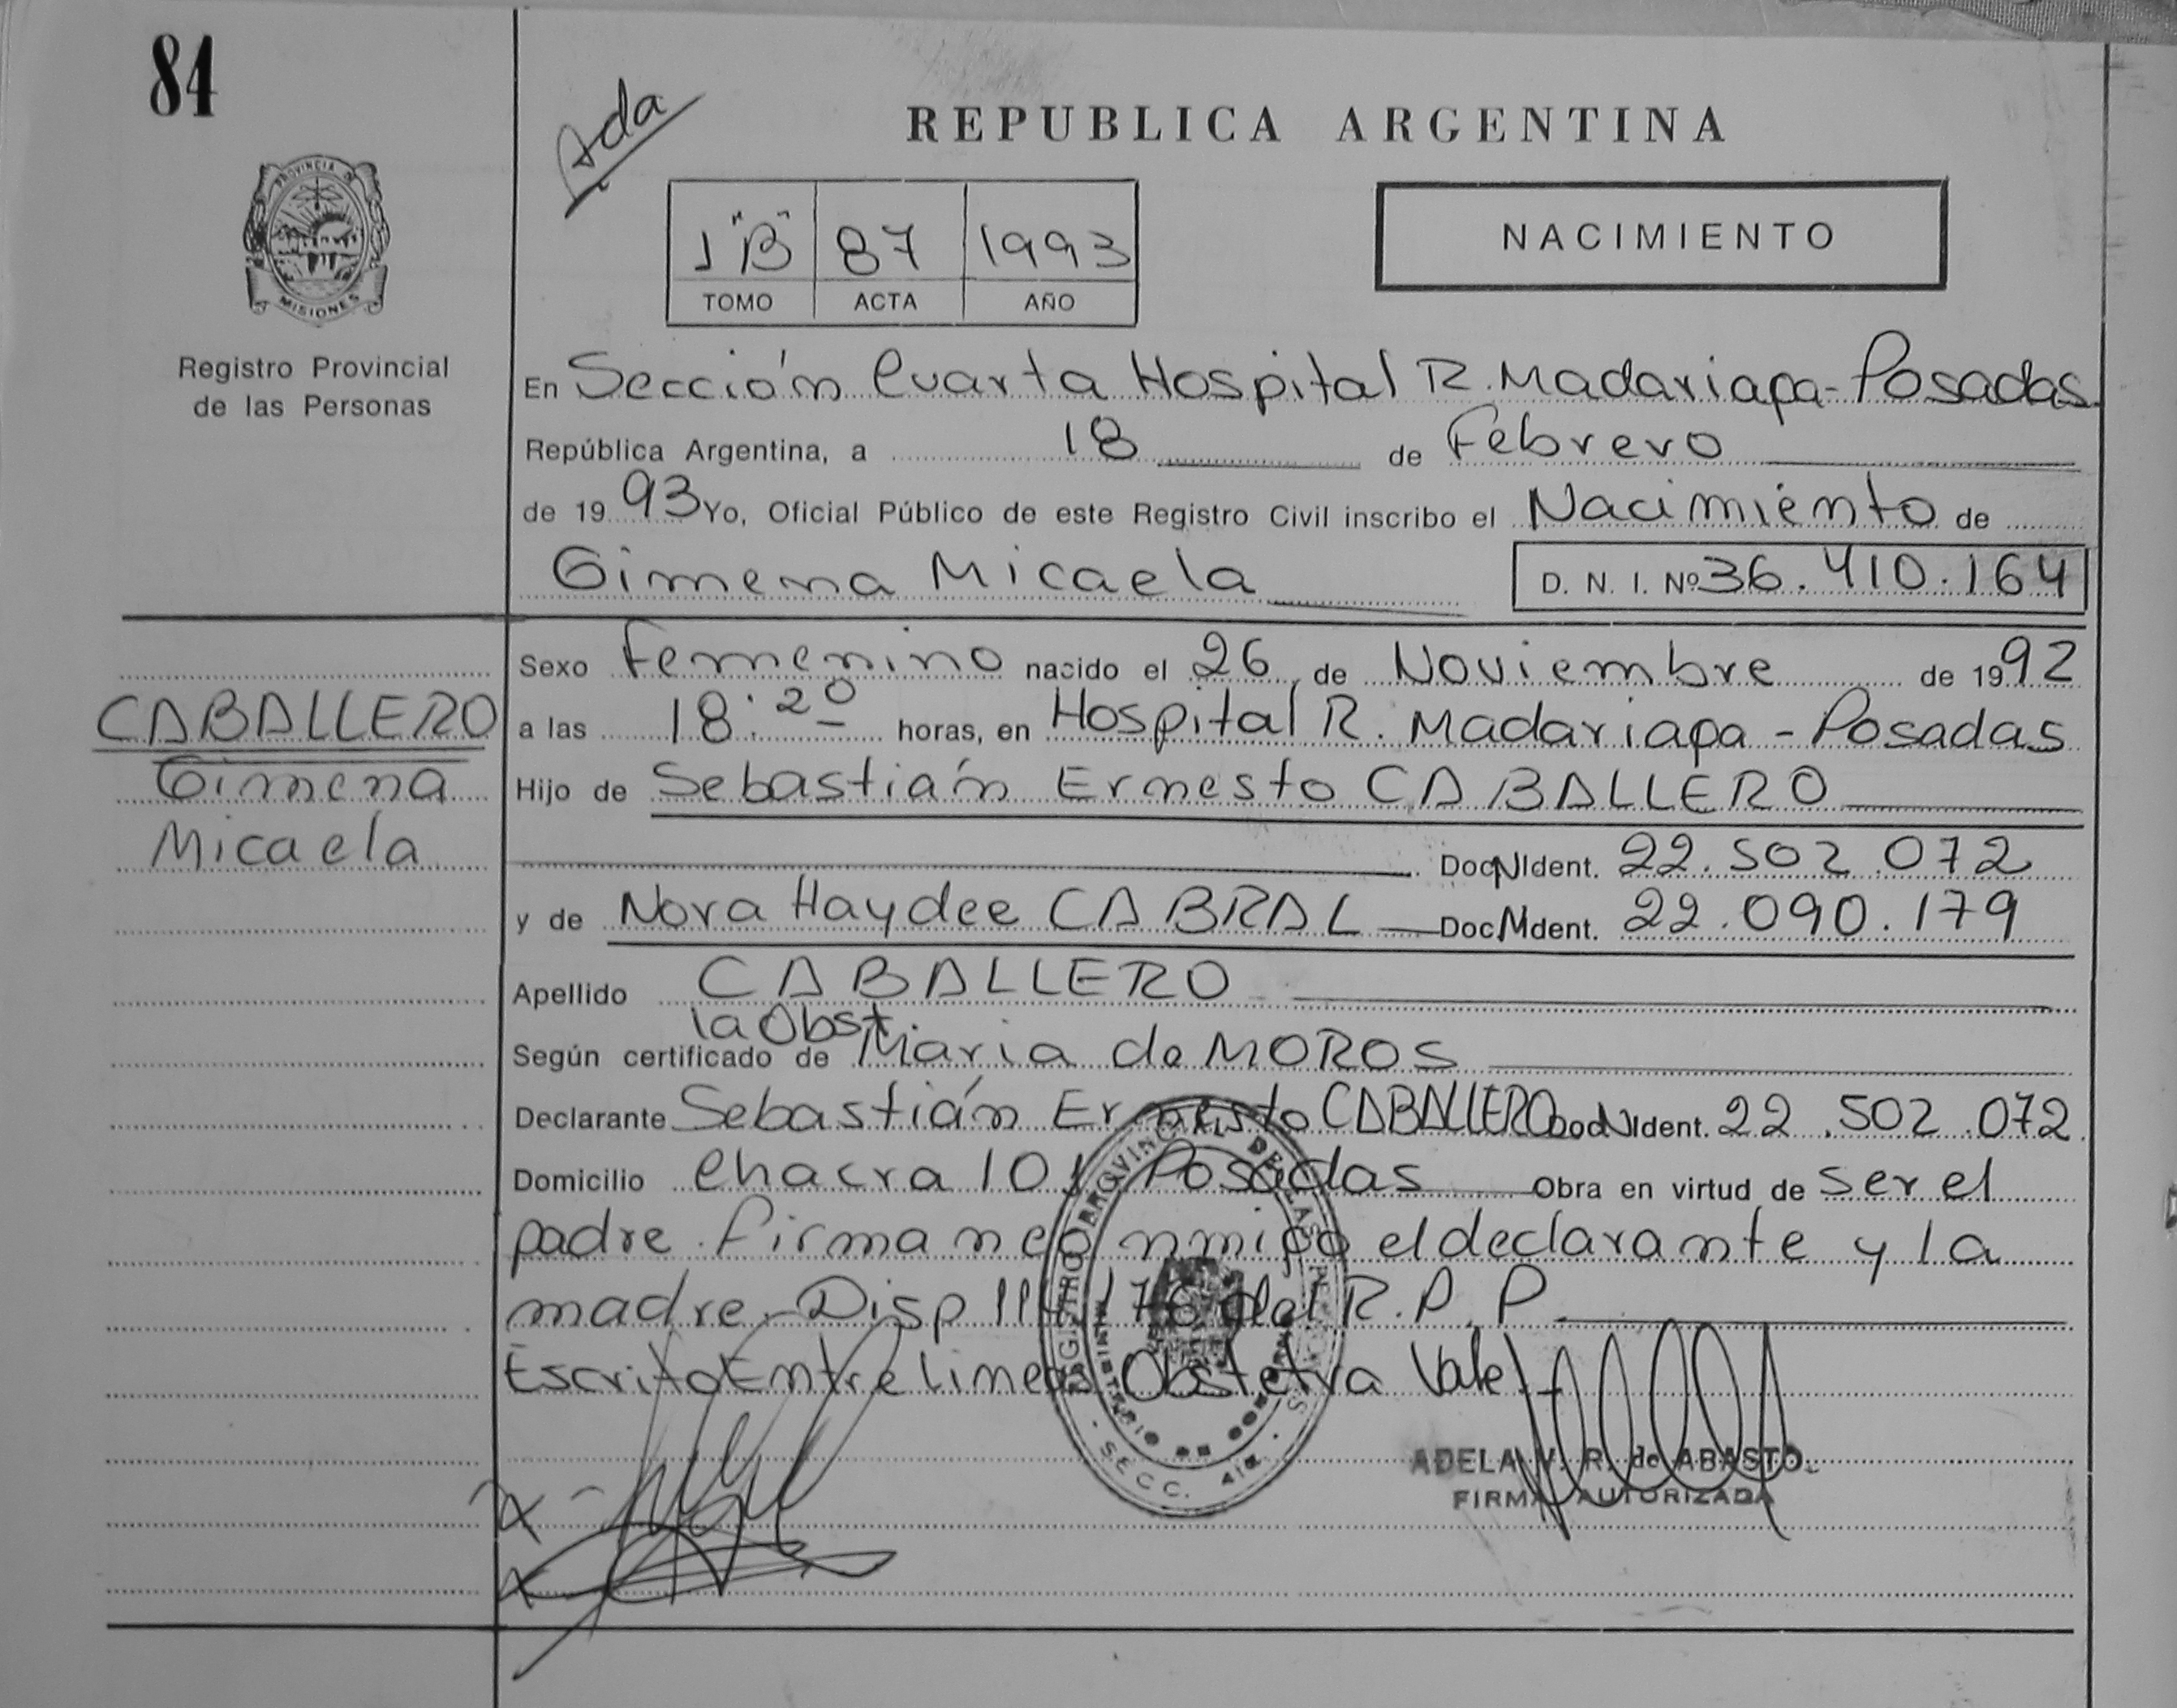 84
Ada
REPUBLICA ARGENTINA
PROVINCIA DE
MISIONES
1 "B" 87 1993
TOMO ACTA AÑO
NACIMIENTO
Registro Provincial
de las Personas
En Sección Cuarta Hospital R. Madariaga - Posadas
República Argentina, a 18 de Febrero
de 1993 Yo, Oficial Público de este Registro Civil inscribo el Nacimiento de
Gimena Micaela D. N. I. Nº 36.410.164
CABALLERO
Gimena
Micaela
Sexo Femenino nacido el 26 de Noviembre de 1992
a las 18:20 horas, en Hospital R. Madariaga - Posadas
Hijo de Sebastián Ernesto CABALLERO
Doc N Ident. 22.502.072
y de Nora Haydee CABRAL Doc N Ident. 22.090.179
Apellido CABALLERO
la Obst.
Según certificado de Maria de MOROS
Declarante Sebastián Ernesto CABALLERO Doc N Ident. 22.502.072
Domicilio Chacra 101 Posadas Obra en virtud de ser el
padre. Firman conmigo el declarante y la
madre. Disp 114/76 del R.P.P.
Escrito Entre lineas Obstetra Vale
REGISTRO PROVINCIAL DE LAS PERSONAS
MINISTERIO DE GOBIERNO
SECC. 4ta.
ADELA V. R. de ABASTO
FIRMA AUTORIZADA